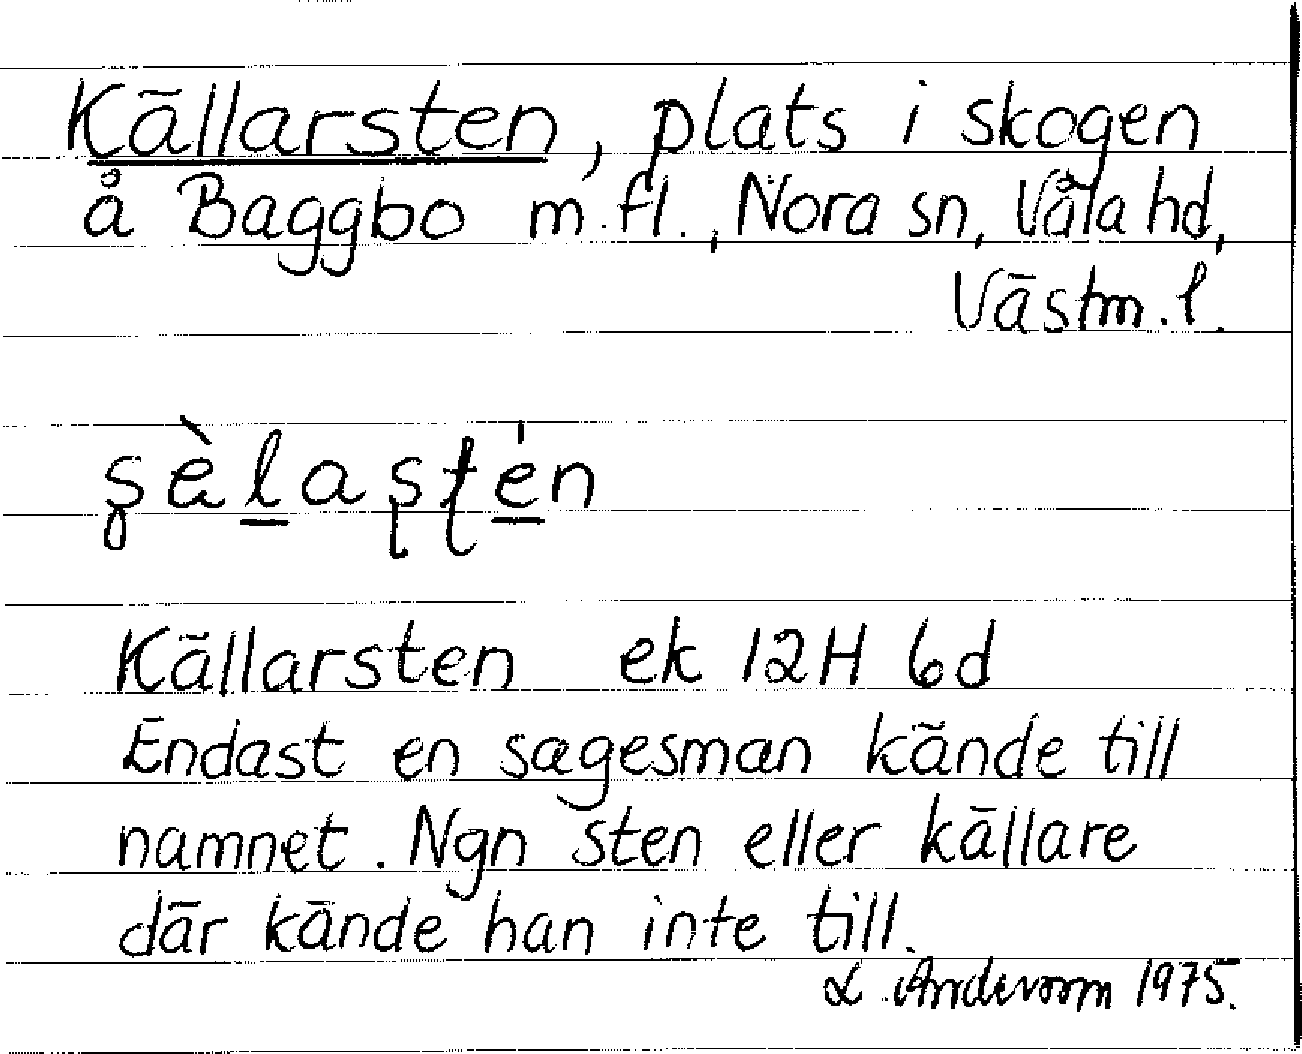 Källarsten, plats i skogen
å Baggbo m.fl., Nora sn, Våla hd,
Västm. l.
Källarsten ek 12H 6d
Endast en sagesman kände till
namnet. Ngn sten eller källare
där kände han inte till.
L. Andersson 1975.